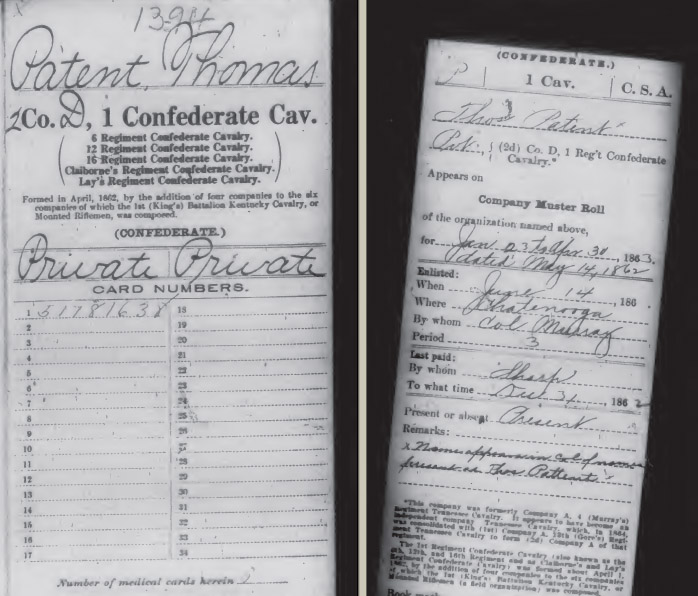 1394
Patent, Thomas
2 Co. D, 1 Confederate Cav.
6 Regiment Confederate Cavalry.
12 Regiment Confederate Cavalry.
16 Regiment Confederate Cavalry.
Claiborne's Regiment Confederate Cavalry.
Lay's Regiment Confederate Cavalry.
Formed in April, 1862, by the addition of four companies to the six
companies of which the 1st (King's) Battalion Kentucky Cavalry, or
Mounted Riflemen, was composed.
(CONFEDERATE.)
Private Private
CARD NUMBERS.
1 51781638 18
2 19
3 20
4 21
5 22
6 23
7 24
8 25
9 26
10 27
11 28
12 29
13 30
14 31
15 32
16 33
17 34
Number of medical cards herein
(CONFEDERATE.)
P 1 Cav. C. S. A.
Thos Patent
Pvt., (2d) Co. D, 1 Reg't Confederate
Cavalry.*
Appears on
Company Muster Roll
of the organization named above,
for Jan 2 to Apr 30, 1863.
dated May 14, 1862
Enlisted:
When June 14, 186
Where Chatanooga
By whom Col Murray
Period 3
Last paid:
By whom Sharp
To what time Dec 31, 1862
Present or absent Present
Remarks:
x Name appears in Col of names
present as Thos Pattent.
*This company was formerly Company A, 4 (Murray's)
Regiment Tennessee Cavalry. It appears to have become an
independent company Tennessee Cavalry, which, in 1864,
was consolidated with (1st) Company A, 12th (Gore's) Regi-
ment Tennessee Cavalry to form (2d) Company A of that
regiment.
The 1st Regiment Confederate Cavalry (also known as the
6th, 12th, and 16th Regiment and as Claiborne's and Lay's
Regiment Confederate Cavalry) was formed about April 1,
1862, by the addition of four companies to the six companies
of which the 1st (King's) Battalion Kentucky Cavalry, or
Mounted Riflemen (a field organization) was composed.
Book mark